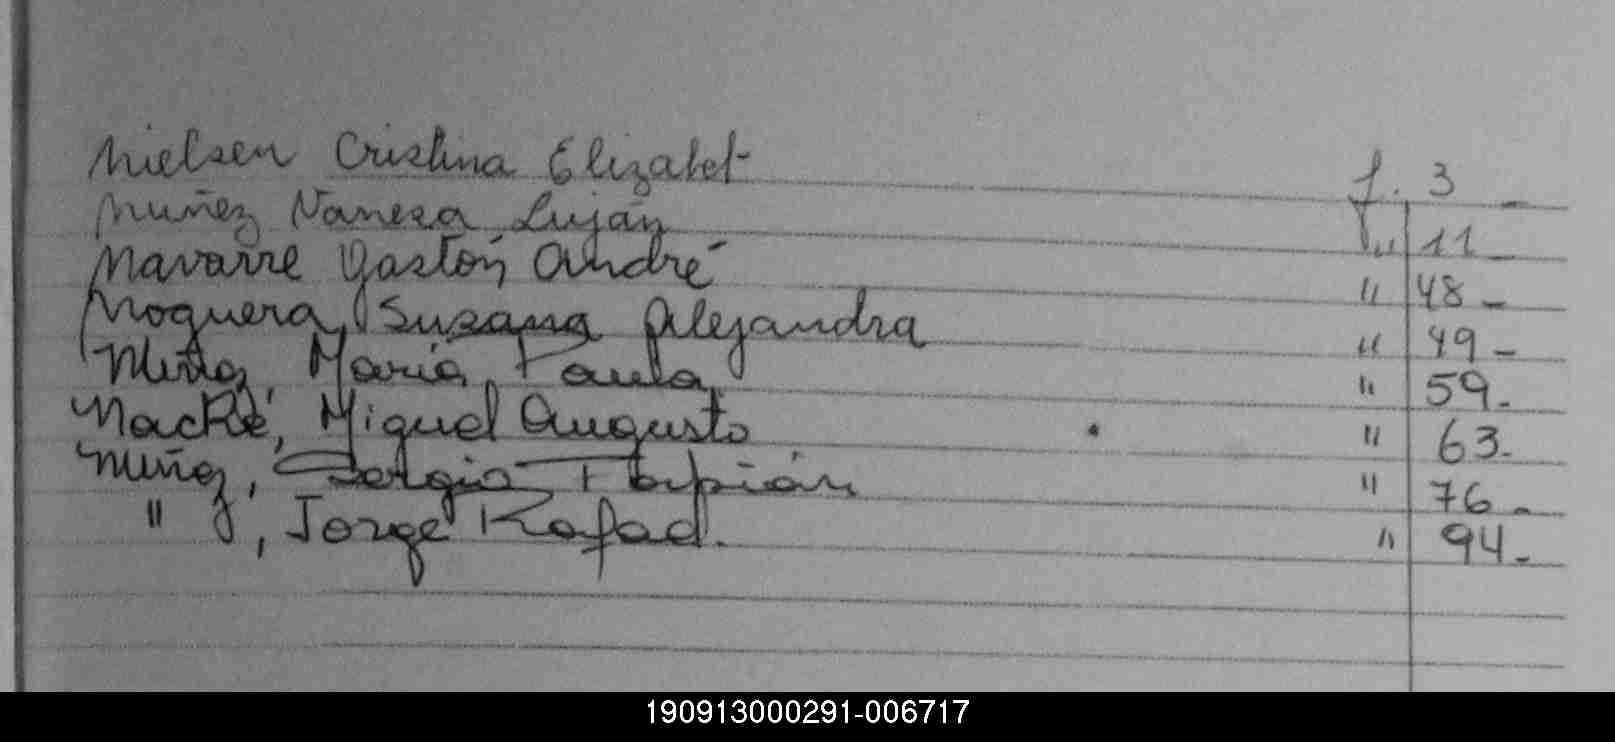 Nielsen Cristina Elizabet f. 3 _
Nuñez Vanesa Luján " 11 _
Navarre Gastón André " 48 _
Noguera, Susana Alejandra " 49 _
María Paula " 59.
Nacké, Miguel Augusto " 63.
Muñoz, Sergio Fabián " 76 _
" , Jorge Rafael. " 94 _
190913000291-006717